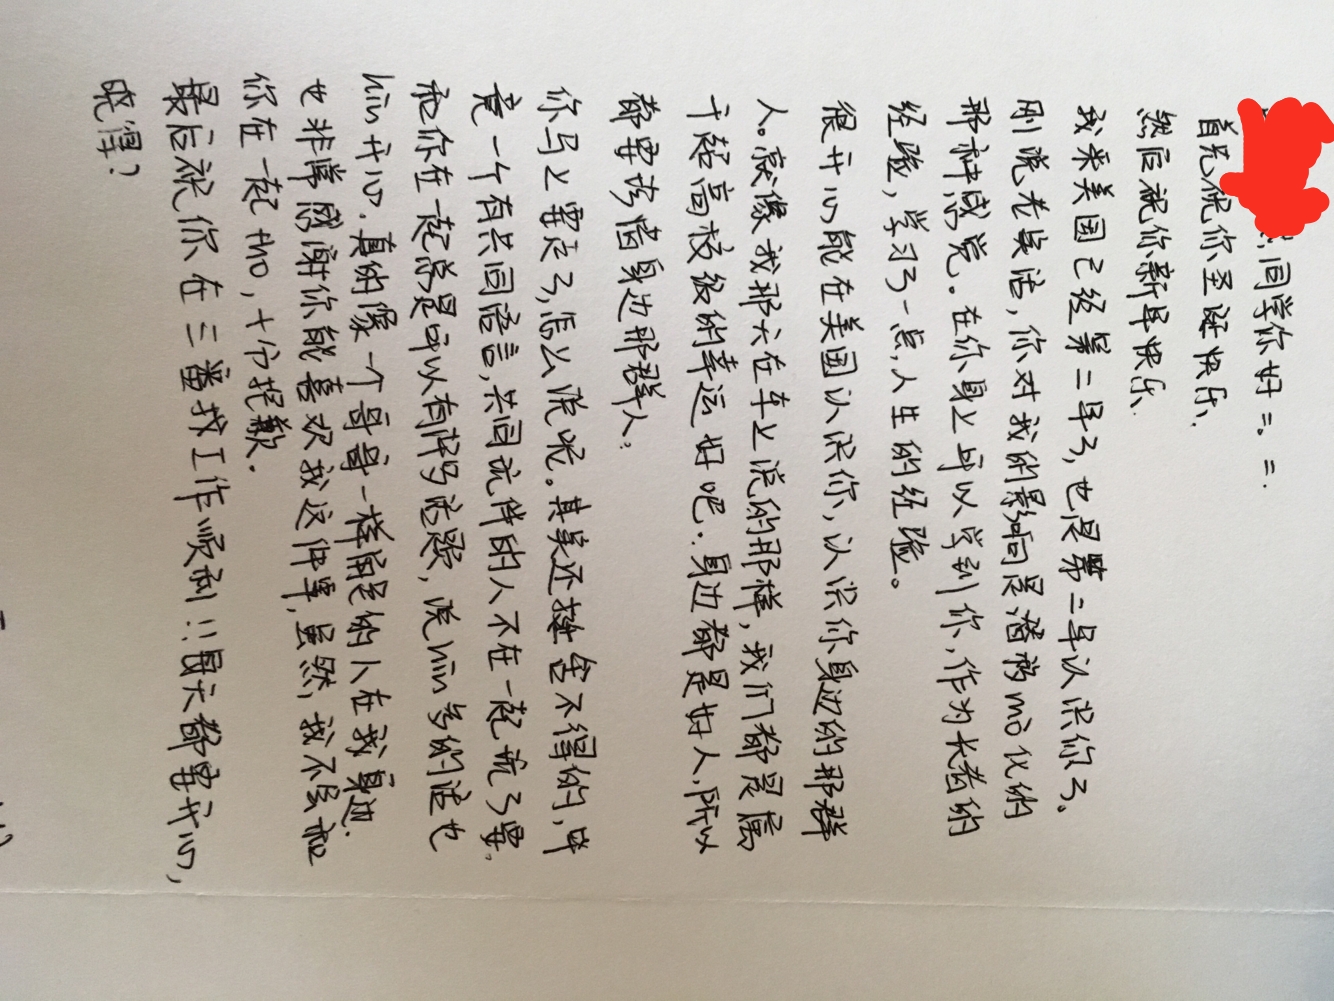 同学你好=。=.
首先祝你圣诞快乐.
然后祝你新年快乐.
我来美国已经第二年了,也是第二年认识你了。
刚说老实话,你对我的影响是潜移mò化的
那种感觉。在你身上可以学到你,作为长者的
经验,学习了一点,人生的经验。
很开心能在美国认识你,认识你身边的那群
人。就像我那天在车上说的那样,我们都是属
于超高校级的幸运好吧..身边都是好人,所以
都要珍惜身边那群人.
你马上要走了,怎么说呢。其实还挺舍不得的,毕
竟一个有共同语言,共同玩伴的人不在一起玩了要.
和你在一起总是可以有许多话题,说hin多的话也
hin开心.真的像一个哥哥一样的人在我身边.
也非常感谢你能喜欢我这件事,虽然,我不会和
你在一起tho,十分抱歉.
最后祝你在三番找工作顺利!!每天都要开心,
晓得?